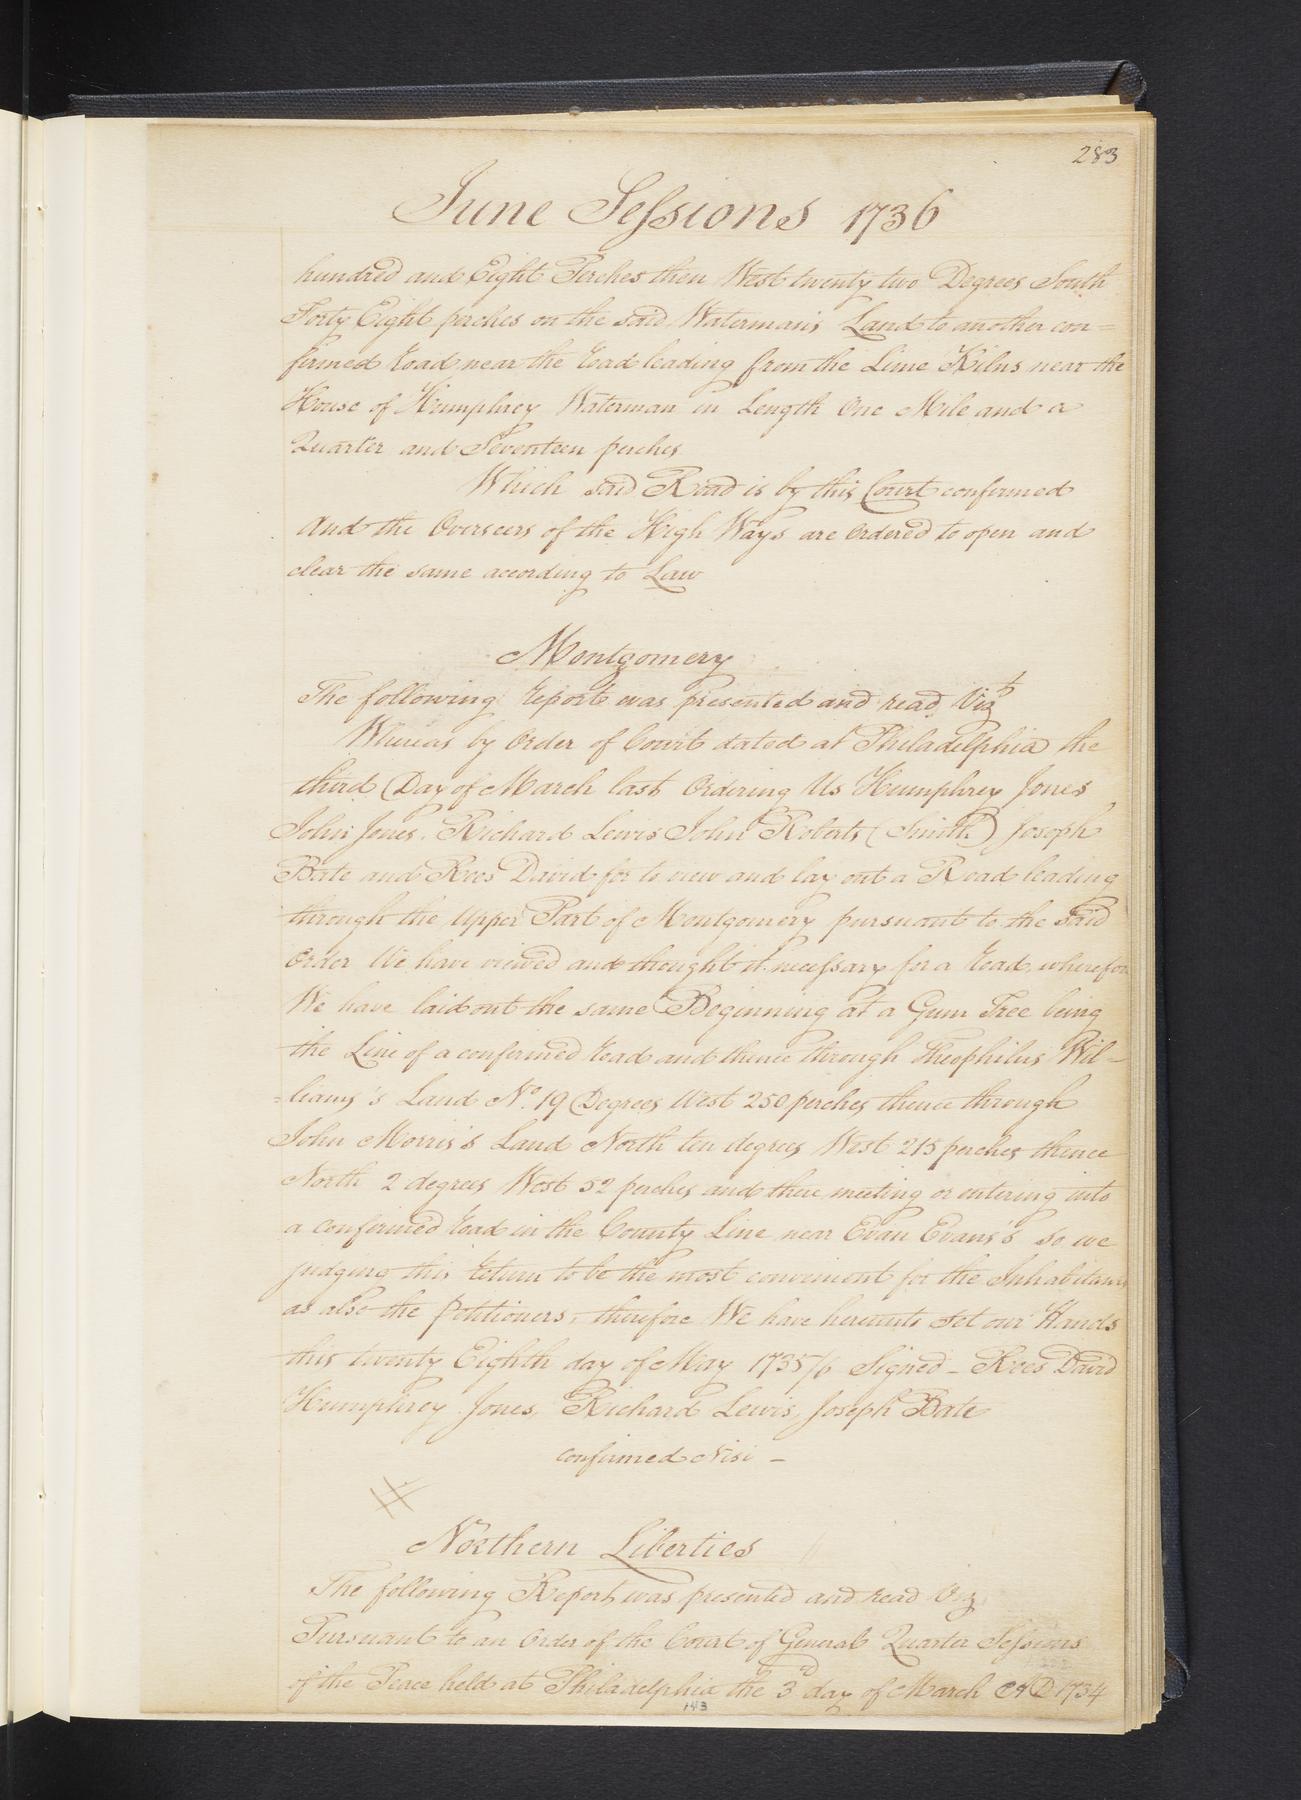 283
June Sessions 1736
hundred and Eight Perches then West twenty two Degrees South
Forty Eight perches on the said Waterman's Land to another con=
firmed road near the road leading from the Lime Kilns near the
House of Humphrey Waterman in Length One Mile and a
Quarter and Seventeen perches
Which said Road is by this Court confirmed
And the Overseers of the High Ways are Ordered to open and
clear the same according to Law
Montgomery
The following report was presented and read Vizt
Whereas by Order of Court dated at Philadelphia the
third Day of March last Ordering Us Humphrey Jones
John Jones, Richard Lewis John Roberts (Smith) Joseph
Bate and Rees David for to view and lay out a Road leading
through the Upper Part of Montgomery pursuant to the said
Order We have viewed and thought it necessary for a road, wherefore
We have laid out the same Beginning at a Gum Tree being
the Line of a confirmed road and thence through Theophilus Wil-
=liams's Land No. 19 Degrees West 250 perches thence through
John Morris's Land North ten degrees West 215 perches thence
North 2 degrees West 52 perches and there meeting or entering into
a confirmed road in the County Line near Evan Evans's so we
judging this return to be the most convenient for the Inhabitants
as also the petitioners, therefore We have hereunto set our Hands
this twenty Eighth day of May 1735/6 Signed - Rees David
Humphrey Jones, Richard Lewis, Joseph Bate
confirmed Nisi -
Northern Liberties
The following Report was presented and read Viz
Pursuant to an Order of the Court of General Quarter Sessions
of the Peace held at Philadelphia the 3d day of March AD 1734
143